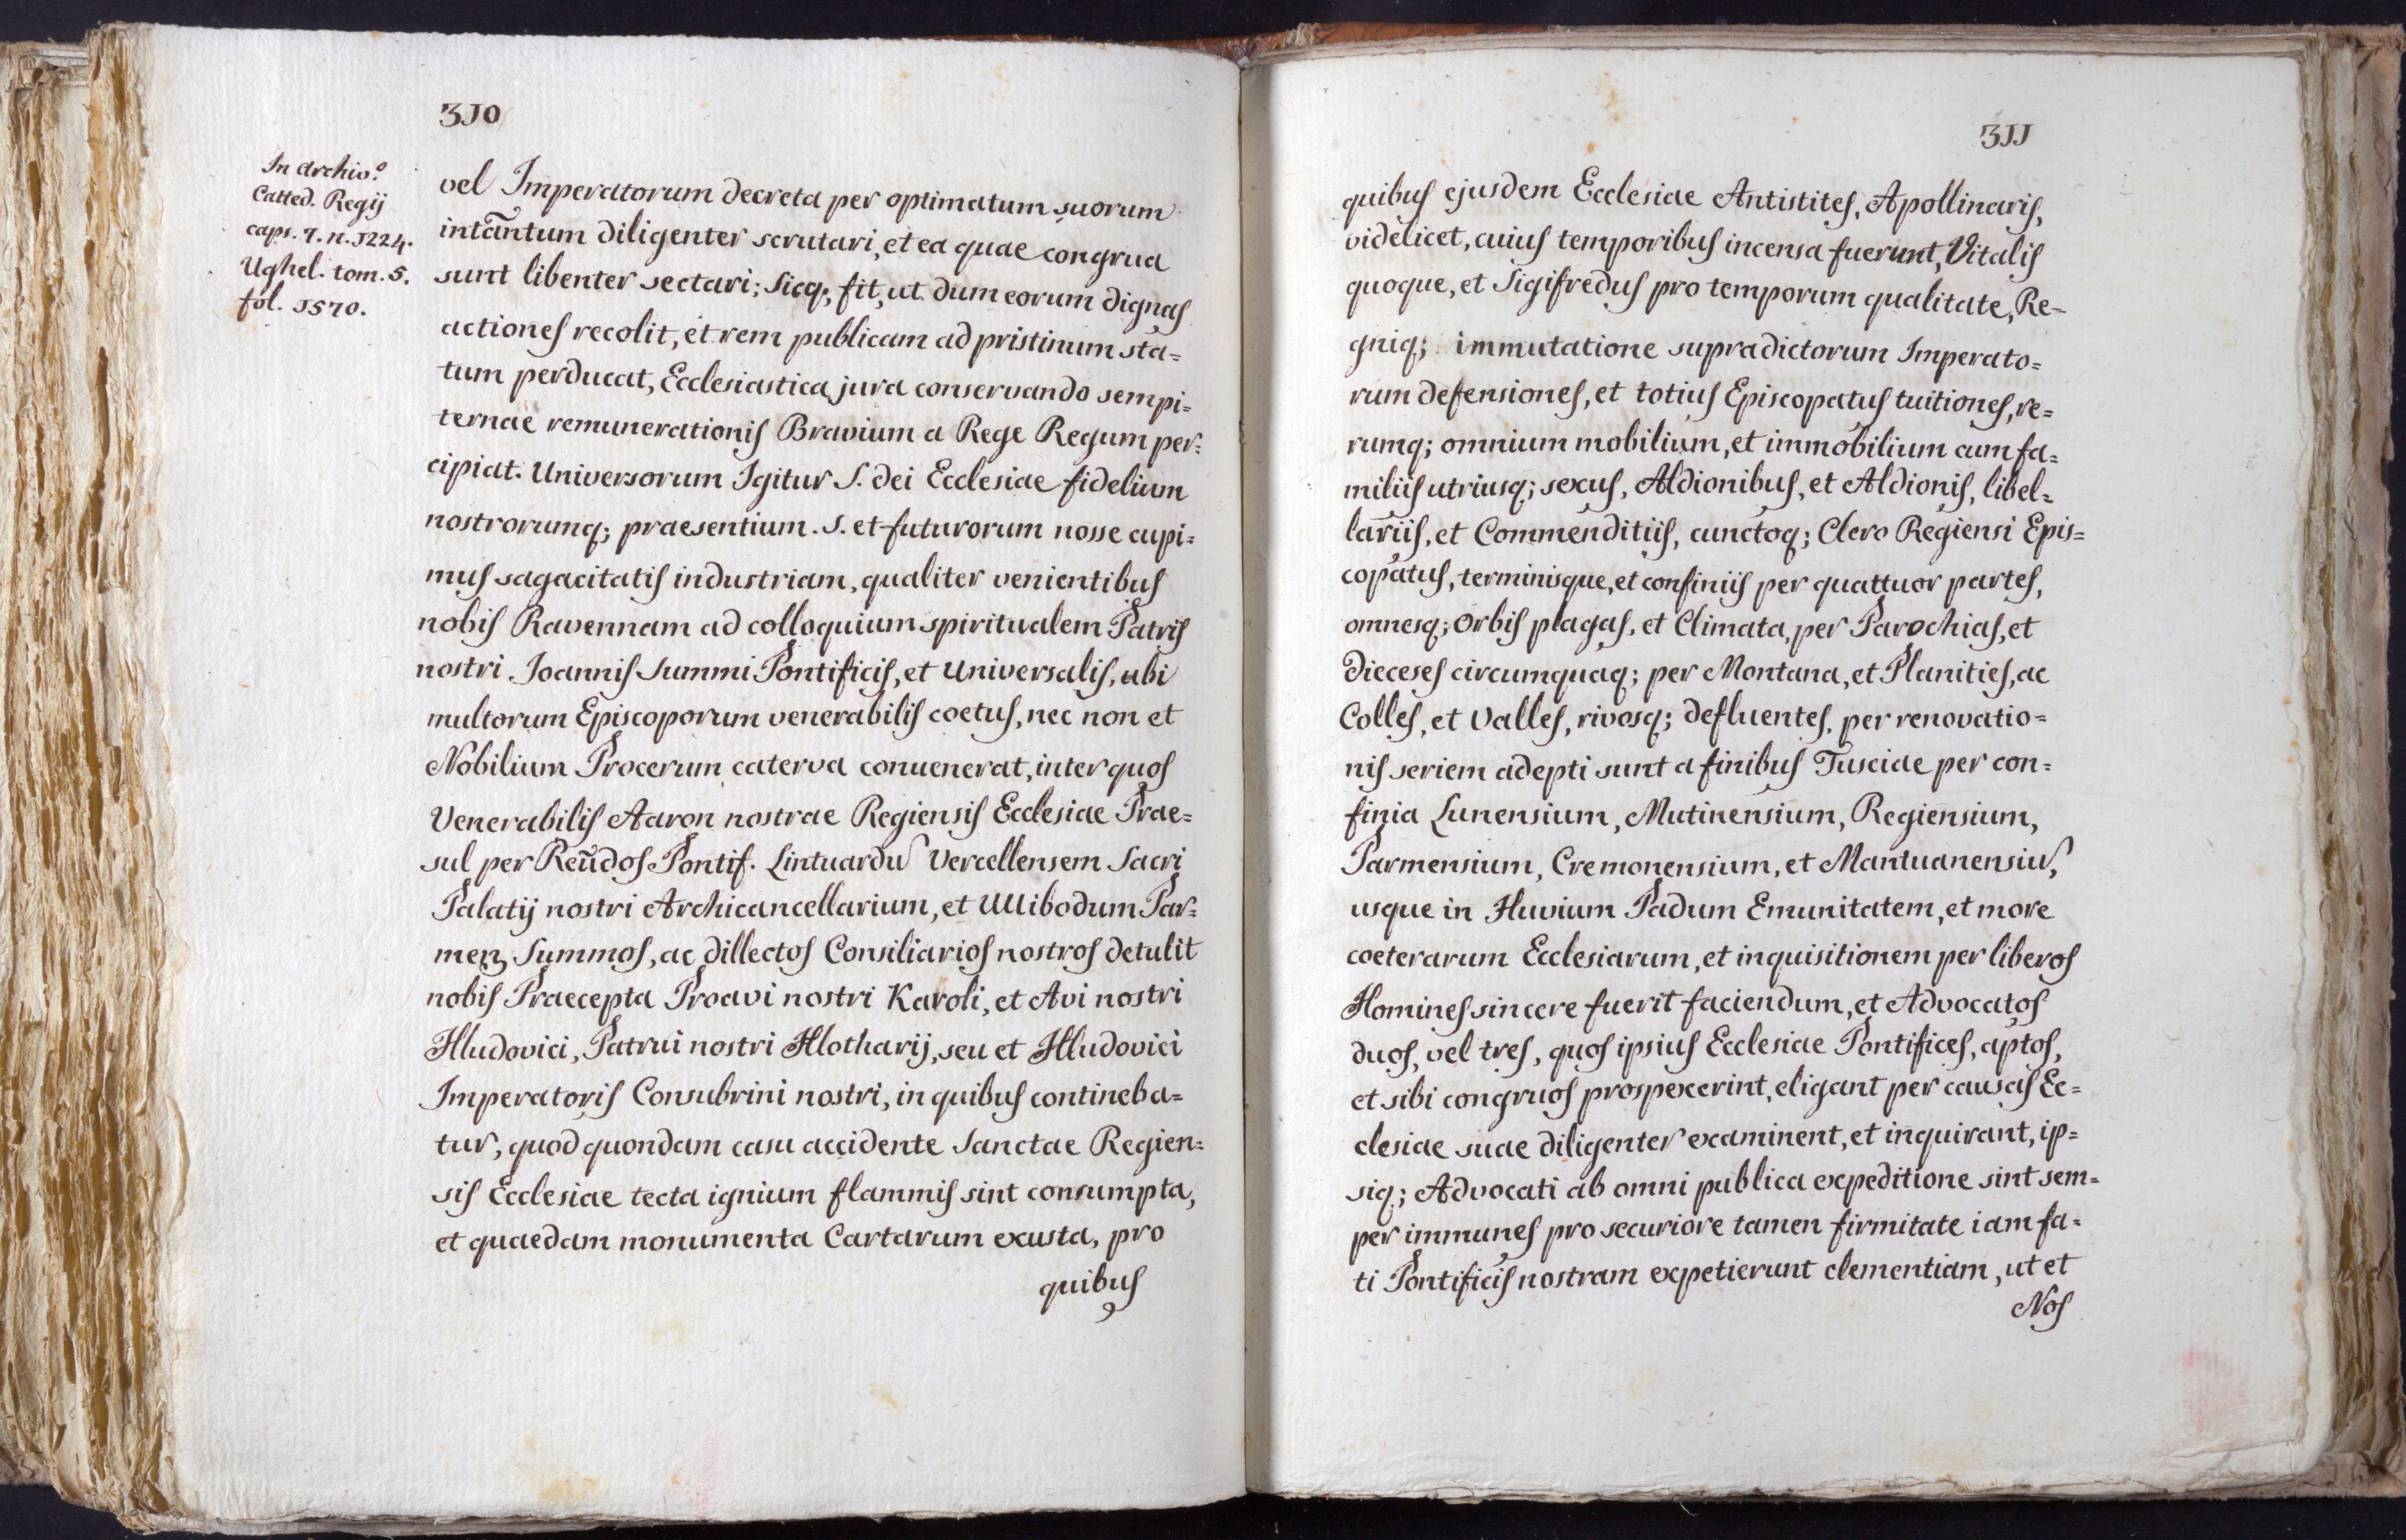 310
In Archiv.º
Catted. Regij
caps. 7. n. 1224.
Ughel. tom. 5.
fol. 1570.
vel Imperatorum decreta per optimatum suorum
intãntum diligenter scrutari, et ea quae congrua
sunt libenter sectari; Sicq; fit, ut dum eorum dignas
actiones recolit, et rem publicam ad pristinum sta=
tum perducat, Ecclesiastica jura conservando sempi=
ternae remunerationis Bravium a Rege Regum per=
cipiat. Universorum Igitur S. dei Ecclesiae fidelium
nostrorumq; praesentium. S. et futurorum nosse cupi=
mus sagacitatis industriam, qualiter venientibus
nobis Ravennam ad colloquium spiritualem Patris
nostri Joannis Summi Pontificis, et Universalis, ubi
multorum Episcoporum venerabilis coetus, nec non et
Nobilium Procerum caterva conuenerat, inter quos
Venerabilis Aaron nostrae Regiensis Ecclesiae Prae=
sul per Reũdos Pontif. Lintuardu Vercellensem Sacri
Palatij nostri Archicancellarium, et Wibodum Par=
men Summos, ac dillectos Consiliarios nostros detulit
nobis Praecepta Proavi nostri Karoli, et Avi nostri
Hludovici, Patrui nostri Hlotharij, seu et Hludovici
Imperatoris Consubrini nostri, in quibus contineba=
tur, quod quondam casu accidente Sanctae Regien=
sis Ecclesiae tecta ignium flammis sint consumpta,
et quaedam monumenta Cartarum exusta, pro
quibus
311
quibus ejusdem Ecclesiae Antistites, Apollinaris,
videlicet, cuius temporibus incensa fuerunt, Vitalis
quoque, et Sigifredus pro temporum qualitate, Re=
gniq; immutatione supradictorum Imperato=
rum defensiones, et totius Episcopatus tuitiones, re=
rumq; omnium mobilium, et immobilium cum fa=
miliis utriusq; sexus, Aldionibus, et Aldionis, libel=
lariis, et Commenditiis, cunctoq; Clero Regiensi Epis=
copatus, terminisque, et confiniis per quattuor partes,
omnesq; Orbis plagas, et Climata, per Parochias, et
Dieceses circumquaq; per Montana, et Planities, ac
Colles, et Valles, rivosq; defluentes, per renovatio=
nis seriem adepti sunt a finibus Tusciae per con=
finia Lunensium, Mutinensium, Regiensium,
Parmensium, Cremonensium, et Mantuanensiu,
usque in Fluvium Padum Emunitatem, et more
coeterarum Ecclesiarum, et inquisitionem per liberos
Homines sincere fuerit faciendum, et Advocatos
duos, vel tres, quos ipsius Ecclesiae Pontifices, aptos,
et sibi congruos prospexerint, eligant per causas Ec=
clesiae suae diligenter examinent, et inquirant, ip=
siq; Advocati ab omni publica expeditione sint sem=
per immunes pro securiore tamen firmitate iam fa=
ti Pontificis nostram expetierunt clementiam, ut et
Nos